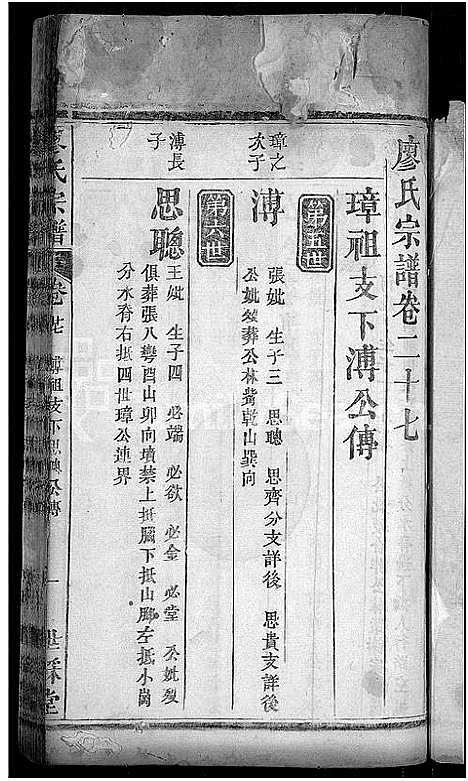 廖氏宗譜卷二十七
璋祖支下溥公傳
第五世
璋之
次子
溥
張妣 生子三 思聰 思齊分支詳後 思貴支詳後
公妣癸葬公林觜乾山巽向
第六世
溥長
子
思聰
王妣 生子四 必端 必欲 必金 必堂 公妣歿
俱葬張八塆酉山卯向墳禁上抵腦下抵山腳左抵小崗
分水脊右抵四世璋公連界
廖氏宗譜
卷廿七
溥祖支下思聰公傳
一
堂